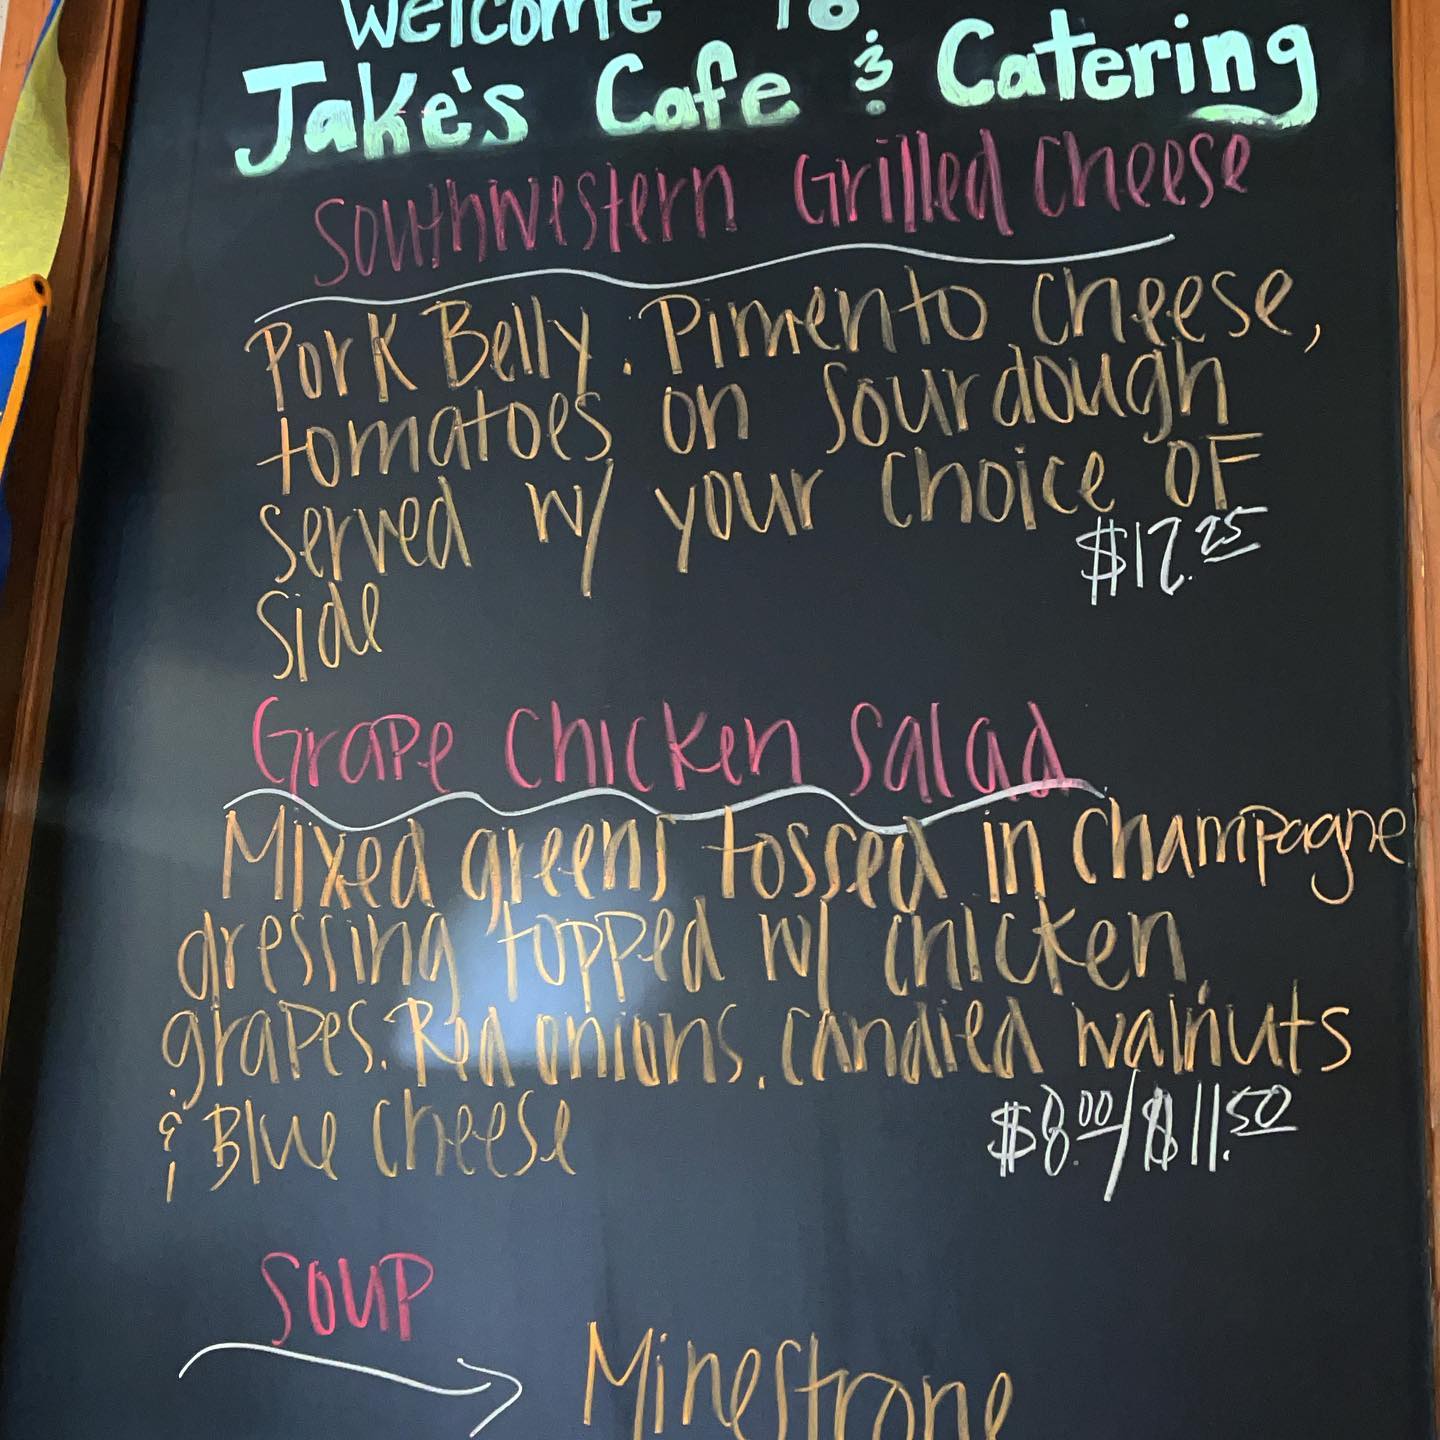 Welcome To
Jake's Cafe & Catering
Southwestern Grilled Cheese
Pork Belly. Pimento cheese,
tomatoes on sourdough
served w/ your choice OF
side
$12.25
Grape Chicken Salad
Mixed greens tossed in champagne
dressing topped w/ chicken,
grapes. Red onions, candied walnuts
& Blue cheese
$8.00/$11.50
SOUP
Minestrone